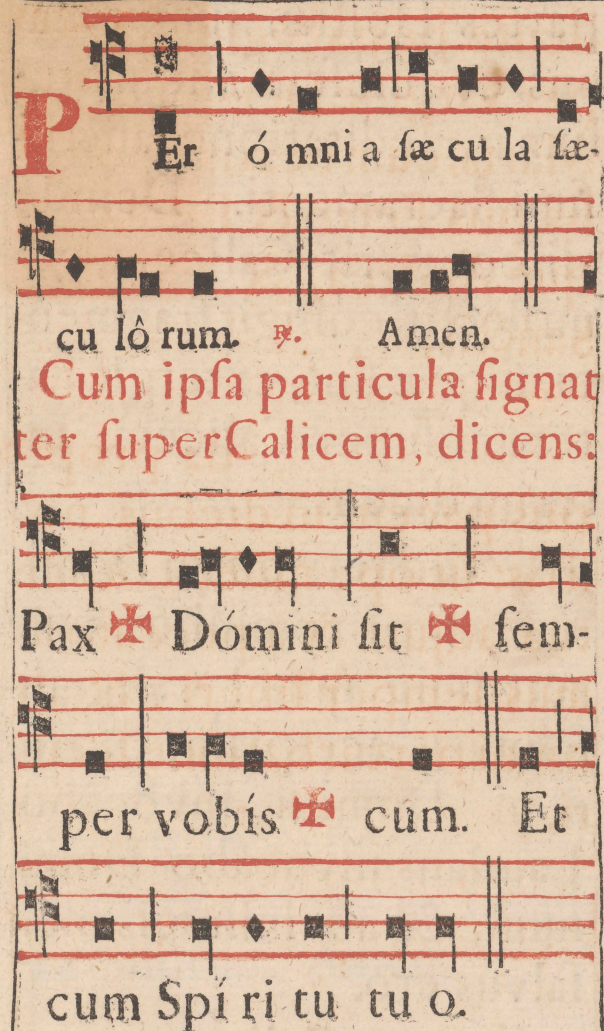 PEr ó mni a ſæ cu la ſæ-
cu lô rum. ℟. Amen.
Cum ipſa particula ſignat
ter ſuper Calicem, dicens:
Pax ✠ Dómini ſit ✠ ſem-
per vobís ✠ cum. Et
cum Spí ri tu tu o.